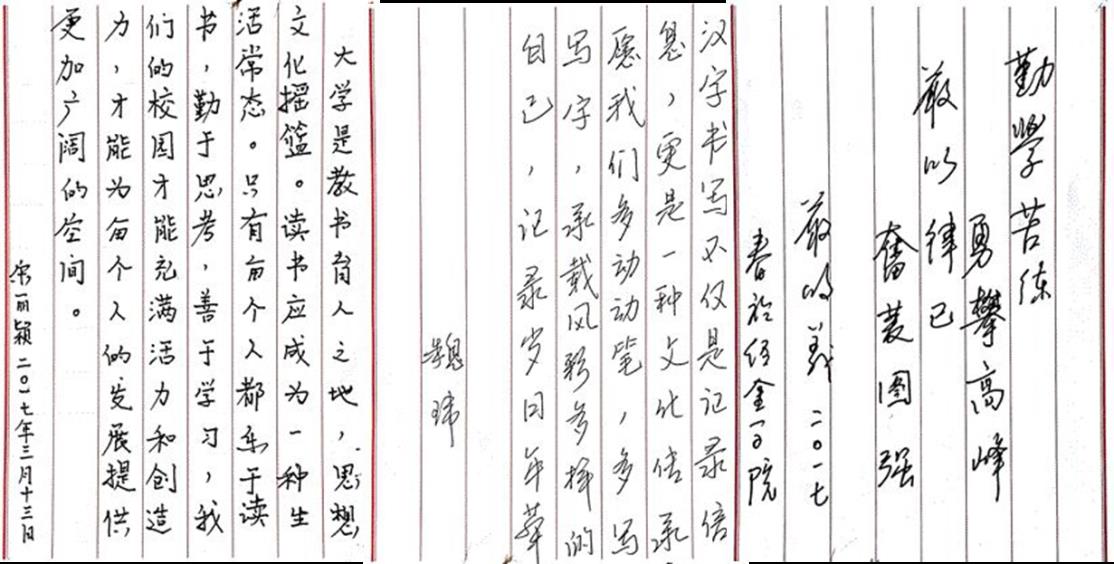 大学是教书育人之地，思想
文化摇篮。读书应成为一种生
活常态。只有每个人都乐于读
书，勤于思考，善于学习，我
们的校园才能充满活力和创造
力，才能为每个人的发展提供
更加广阔的空间。
丽颖二〇一七年三月十三日
汉字书写不仅是记录信
息，更是一种文化传承
愿我们多动动笔，多写
写字，承载风彩多样的
自己，记录岁月年华
魏玮
勤學苦练
勇攀高峰
嚴以律己
奮发图强
嚴明义 二〇一七
春於经金学院